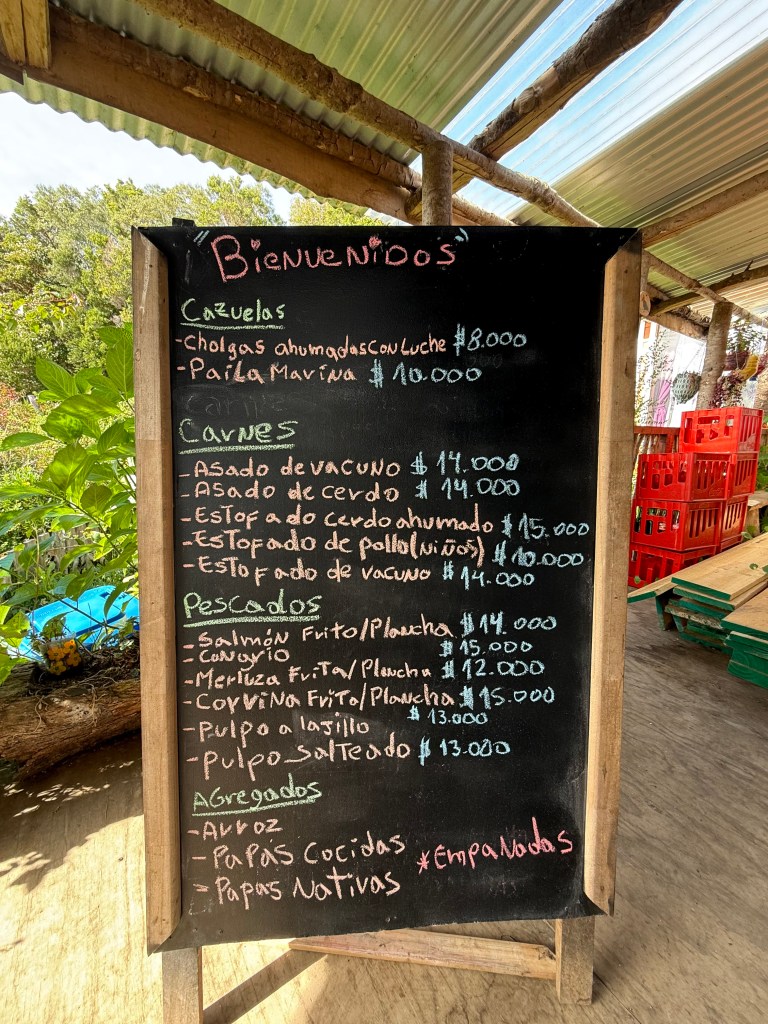 "Bienvenidos"
Cazuelas
-Cholgas ahumadas con Luche $8.000
-Paila Marina $10.000
Carnes
-Asado de vacuno $14.000
-Asado de cerdo $14.000
-Estofado cerdo ahumado $15.000
-Estofado de pollo(niños) $10.000
-Estofado de vacuno $14.000
Pescados
-Salmón Frito/Plancha $14.000
-Congrio $15.000
-Merluza Frita/Plancha $12.000
-Corvina Frita/Plancha $15.000
-Pulpo al ajillo $13.000
-Pulpo salteado $13.000
Agregados
-Arroz
-Papas Cocidas *Empanadas
-Papas Nativas